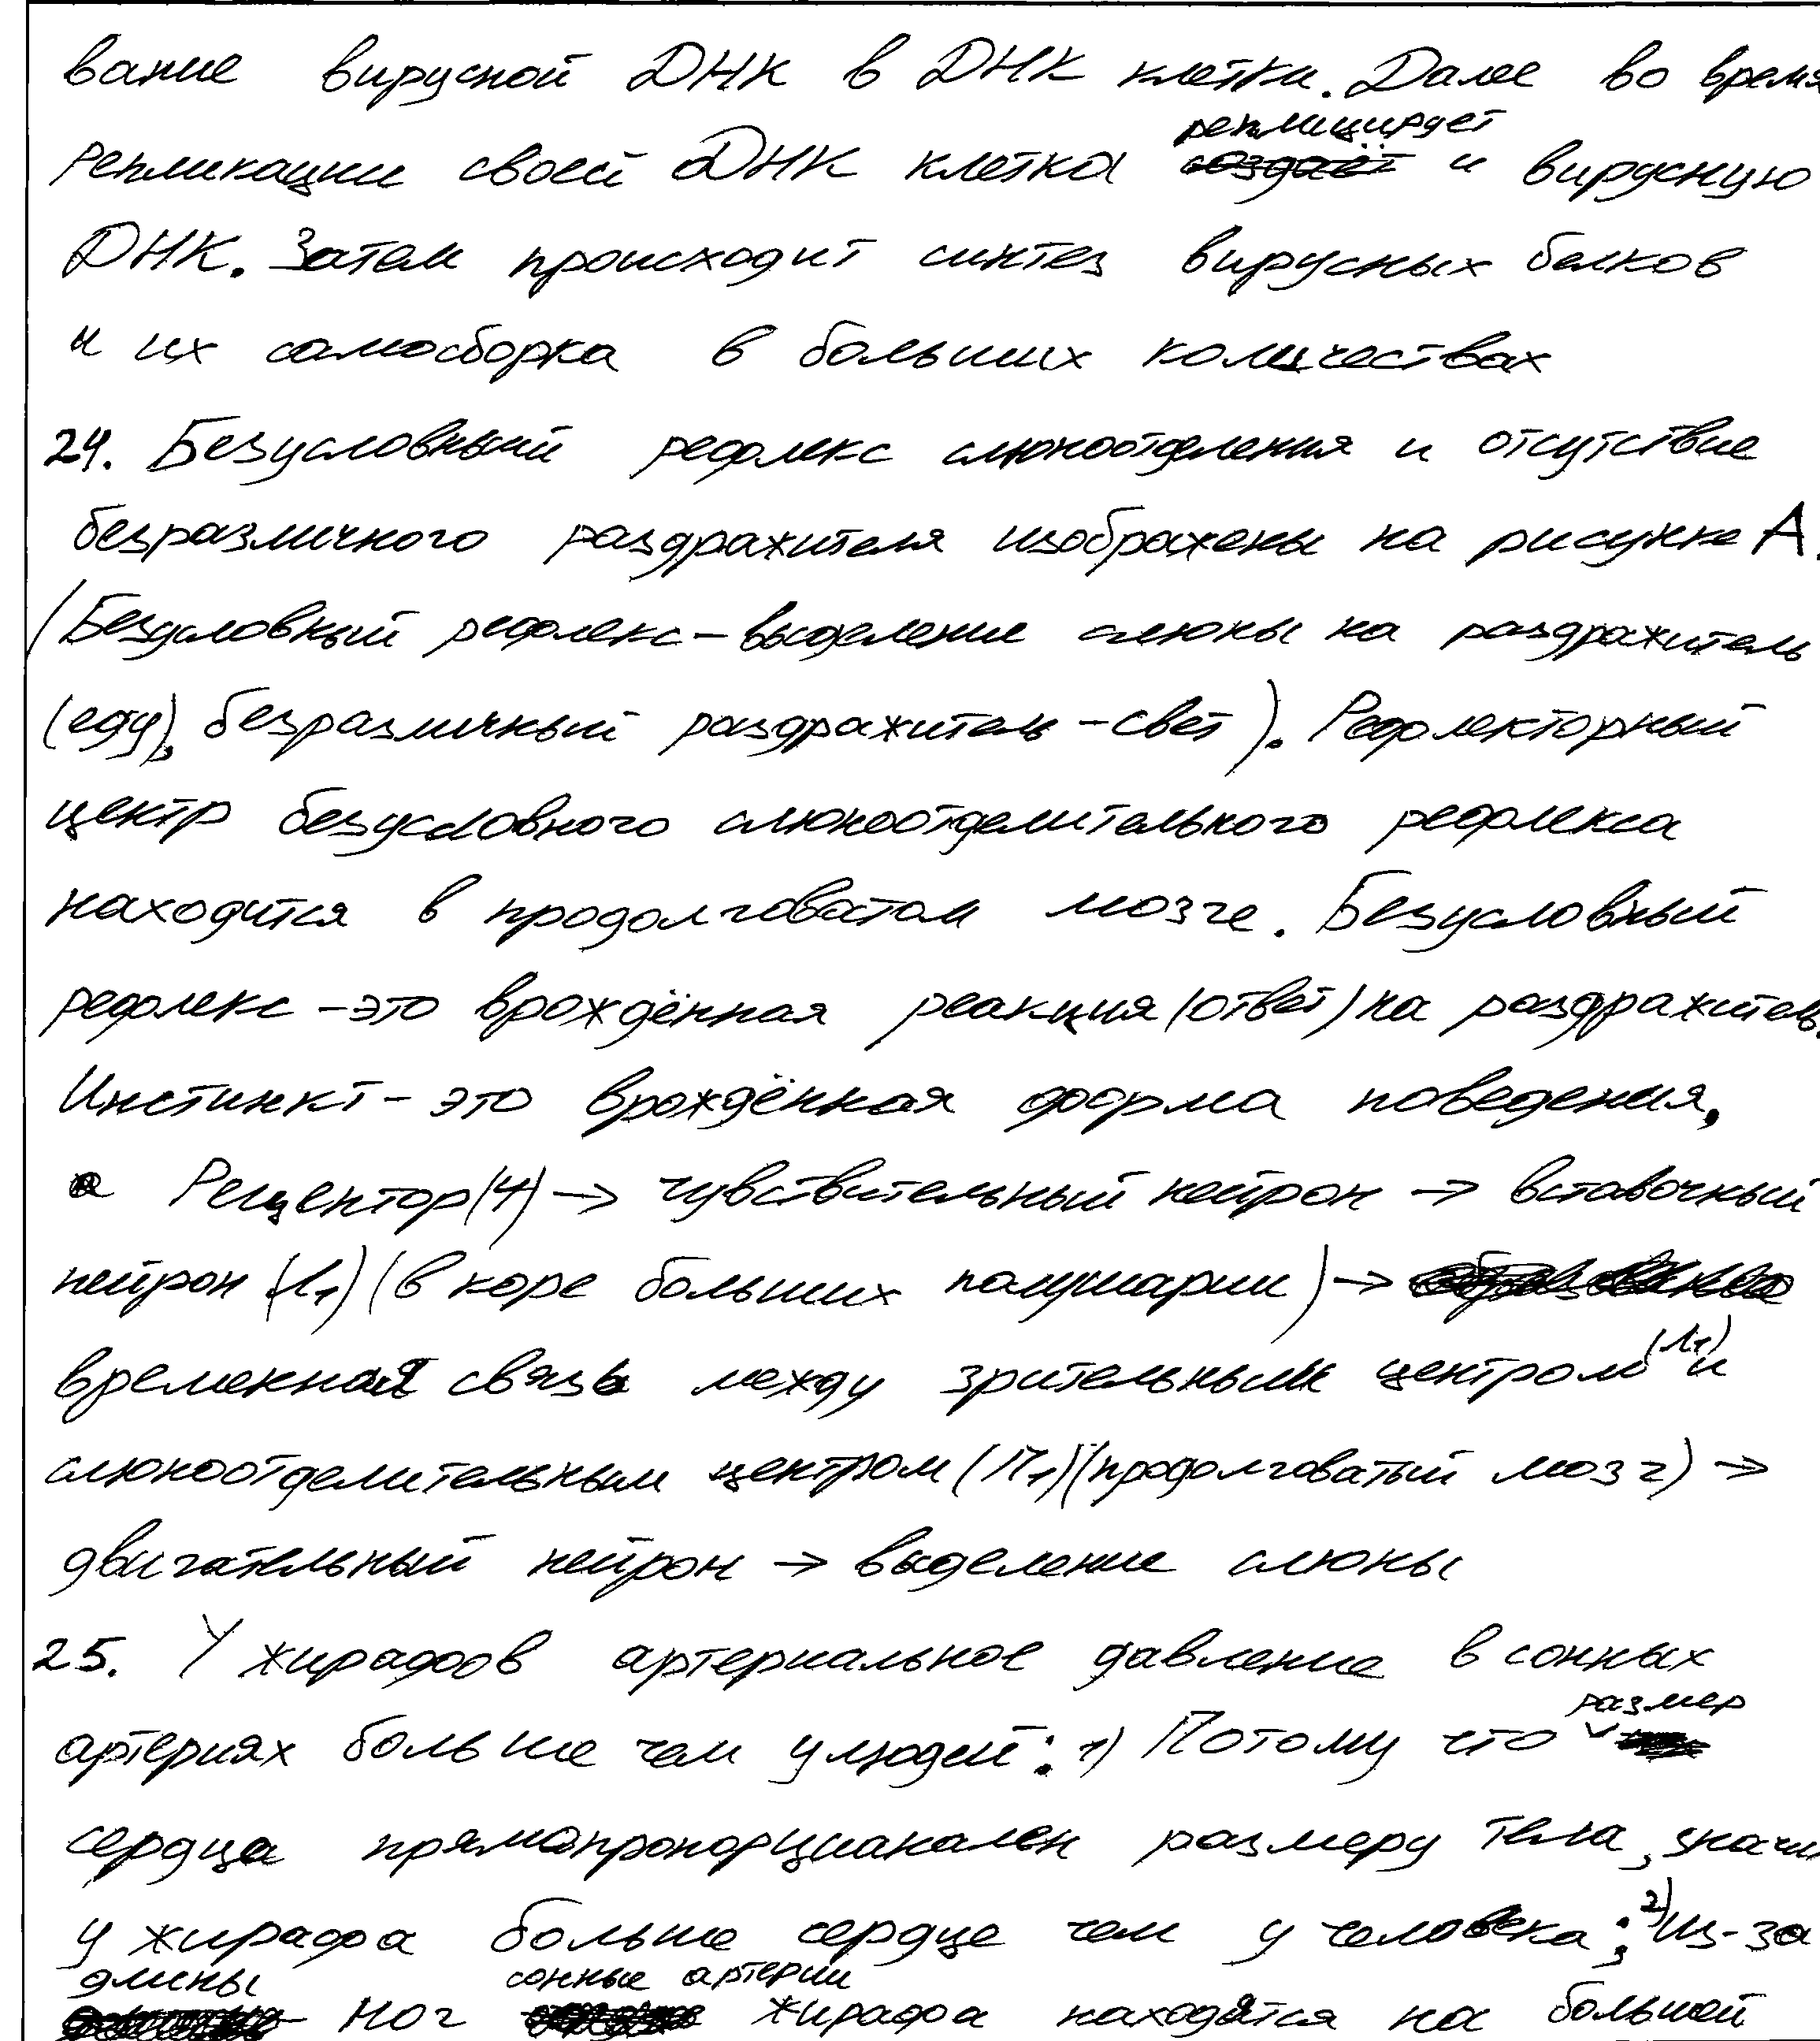 вание вирусной ДНК в ДНК клетки. Далее во время
реплицирует
репликации своей ДНК клетка создаёт и вирусную
ДНК. Затем происходит синтез вирусных белков
и их самосборка в больших количествах
24. Безусловный рефлекс слюноотделения и отсутствие
безразличного раздражителя изображены на рисунке А.
(Безусловный рефлекс - выделение слюны на раздражитель
(еду), безразличный раздражитель - свет). Рефлекторный
центр безусловного слюноотделительного рефлекса
находится в продолговатом мозге. Безусловный
рефлекс - это врождённая реакция (ответ) на раздражитель.
Инстинкт - это врождённая форма поведения,
а Рецептор (4) → чувствительный нейрон → вставочный
нейрон (Л₁) (в коре больших полушарий) →
временная связь между зрительным центром (Л₁) и
слюноотделительным центром (П₁) (продолговатый мозг) →
двигательный нейрон → выделение слюны
25. У жирафов артериальное давление в сонных
размер
артериях больше чем у людей: 1) Потому что
сердца прямопропорцианален размеру тела, значи
у жирафа больше сердце чем у человека; 2) Из-за
длины сонные артерии
ног жирафа находятся на большой